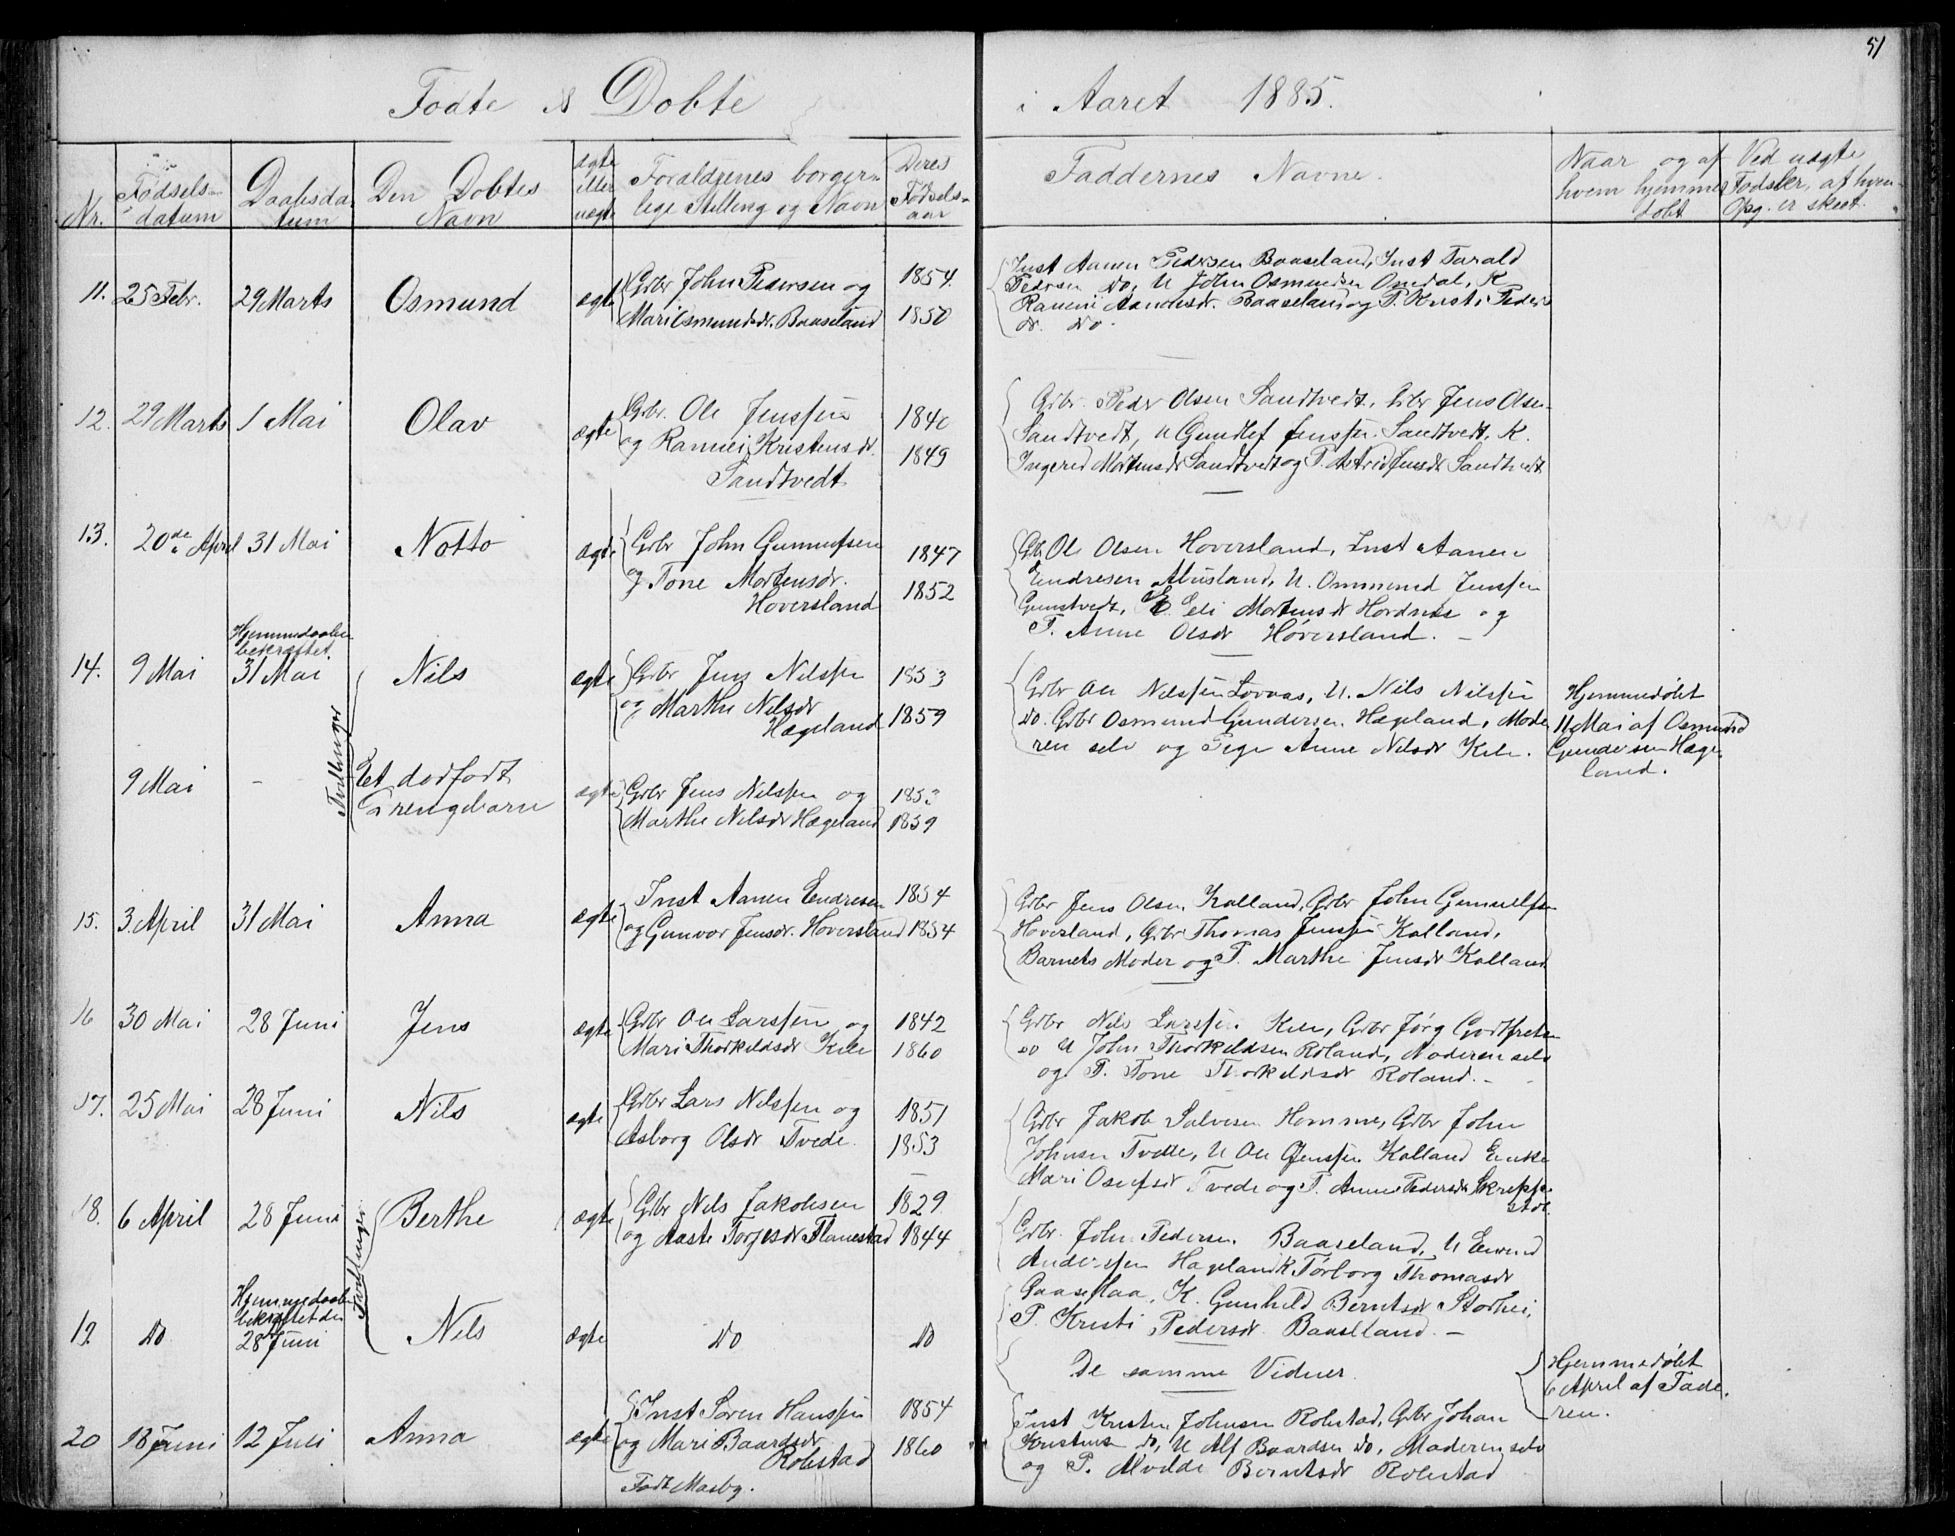 51
Fødte & Døbte i Aaret 1885.
Nr.
Fødsels-
datum
Daabsda
tum
Den Døbtes
Navn
ægte
eller
uægte
Forældrenes borger-
lige Stilling og Navn
Deres
Fødsels-
aar
Faddernes Navne.
Naar og af
hvem hjemme
døbt
Ved uægte
Fødsler, af hvem
Opg. er skeet.
11. 25 Febr. 29 Marts Osmund ægte
Gbr John Pedersen og
Mari Osmundsdr. Baaseland
1854.
1850
Inst Aanen Pedersen Baaseland, Inst Tarald
Pedersen do, U John Osmundsen Omdal, K
Ramei Aanensdr. Baaseland og P. Kristi Peders
dr. do.
12. 29 Marts 1 Mai Olav ægte
Gbr. Ole Jenssen
og Ramei Kristensdr.
Sandtvedt
1840
1849
Gbr. Peder Olsen Sandtvedt, Gbr Jens Olsen
Sandtvedt, U Gundlef Jenssen Sandtvedt, K.
Ingered Mortensdr Sandtvedt og P. Astrid Jensdr Sandtvedt
13. 20de April 31 Mai Notto ægte
Gbr John Gunnufsen
og Tone Mortensdr.
Hoversland
1847
1852
Gb Ole Olsen Hoversland, Inst Aanen
Endresen Abusland, U. Ommund Jenssen
Gunstvedt, K. Eli Mortensdr Hordnes og
P. Anne Olsdr Høversland. -
Hjemmedaaben
bekræftet
14. 9 Mai 31 Mai Nils ægte
Tvillinger
Gbr Jens Nilssen
og Marthe Nilsdr
Hægeland
1853
1859
Gbr Ole Nilssen Lovaas, U. Nils Nilssen
do. Gbr Osmund Gundersen Hægeland, Mode
ren selv og Pige Anne Nilsdr Kile.
Hjemmedøbt
11 Mai af Osmund
Gundersen Hæge
land.
9 Mai -
Et dødfødt
Drengebarn
ægte
Gbr Jens Nilssen og
Marthe Nilsdr Hægeland
1853
1859
15. 3. April 31 Mai Anna ægte
Inst Aanen Endresen
og Gunvor Jensdr. Hoversland
1854
1854
Gbr Jens Olsen Kalland, Gbr John Gunnulfsen
Hoversland, Gbr Thomas Jenssen Kalland,
Barnets Moder og P. Marthe Jensdr Kalland
16 30 Mai 28 Juni Jens ægte
Gbr Ole Larssen og
Mari Thorkildsdr Kile
1842
1860
Gbr Nils Larssen Kile, Gbr Jørg Godtfretsen
do U John Thorkildsen Roland, Moderen selv
og P. Tone Thorkildsdr Roland. -
17. 25 Mai 28 Juni Nils ægte
Gbr Lars Nilssen og
Asborg Olsdr Tvede.
1851
1853
Gbr Jakob Salvesen Homme, Gbr John
Johnsen Tvede, U Ole Jenssen Kalland Enke
Mari Osufsdr Tvede og P. Anne Pedersdr Skreppe
støl.
18. 6 April 28 Juni Berthe ægte
Tvillinger
Gbr Nils Jakobsen
og Aaste Torjesdr Flanestad
1829.
1844
Gbr. John Pedersen Baaseland, U Eivind
Anderssen Hægeland K Torborg Thomasdr
Gaaseflaa, K. Gunhild Berntsdr Storhei,
P. Kristi Pedersdr. Baaseland. -
Hjemmedaaben
bekræftet den
19. do 28 Juni Nils ægte do do
De samme Vidner
Hjemmedøbt
6 April af Fade
ren.
20 18 Juni 12 Juli Anna ægte
Inst Søren Hanssen
og Mari Baardsdr
Robstad
Født Mosby.
1854
1860
Inst Kristen Johnsen Robstad, Gbr Johan
Kristens do, U Alf Baardsen do, Moderen selv
og P. Alvilde Berntsdr Robstad